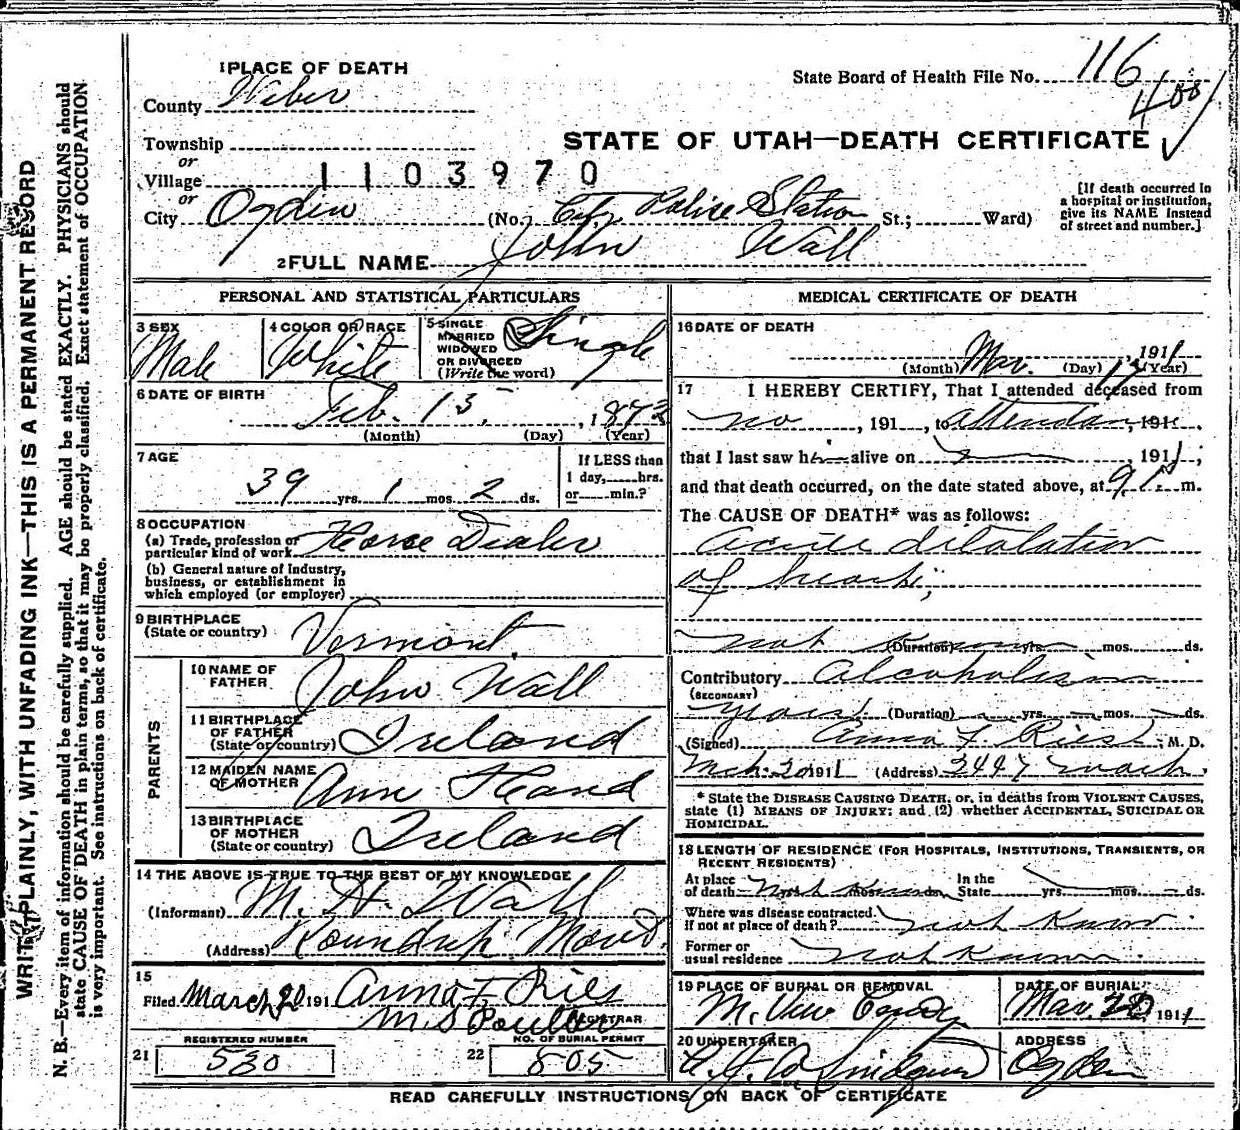 1 PLACE OF DEATH
State Board of Health File No. 116
400
County Weber
STATE OF UTAH—DEATH CERTIFICATE
Township
or
Village 1103970
or
City Ogden (No. City Police Station St.; Ward)
[If death occurred in
a hospital or institution,
give its NAME instead
of street and number.]
2 FULL NAME John Wall
PERSONAL AND STATISTICAL PARTICULARS
3 SEX
Male
4 COLOR OR RACE
White
5 SINGLE
MARRIED
WIDOWED
OR DIVORCED
(Write the word)
Single
6 DATE OF BIRTH
Feb. 15, 1872
(Month) (Day) (Year)
7 AGE
39 yrs. 1 mos. 2 ds.
If LESS than
1 day, hrs.
or min.?
8 OCCUPATION
(a) Trade, profession or
particular kind of work Horse Dealer
(b) General nature of industry,
business, or establishment in
which employed (or employer)
9 BIRTHPLACE
(State or country) Vermont
PARENTS
10 NAME OF
FATHER John Wall
11 BIRTHPLACE
OF FATHER
(State or country) Ireland
12 MAIDEN NAME
OF MOTHER Ann Heand
13 BIRTHPLACE
OF MOTHER
(State or country) Ireland
14 THE ABOVE IS TRUE TO THE BEST OF MY KNOWLEDGE
(Informant) M. H. Wall
(Address) Roundup, Mont.
15
Filed March 20 191 Anna F. Ries
M S Poulter REGISTRAR
REGISTERED NUMBER
21 530
NO. OF BURIAL PERMIT
22 805
MEDICAL CERTIFICATE OF DEATH
16 DATE OF DEATH
Mar. 17, 1911
(Month) (Day) (Year)
17 I HEREBY CERTIFY, That I attended deceased from
no , 191 , to attendan , 191 ,
that I last saw h alive on , 1911;
and that death occurred, on the date stated above, at 9 m.
The CAUSE OF DEATH* was as follows:
Acute dilatation
of heart;
not known (Duration) yrs. mos. ds.
Contributory Alcoholism
(SECONDARY)
years (Duration) yrs. mos. ds.
(Signed) Anna F. Ries, M. D.
Mch. 20 1911 (Address) 2447 Wash.
* State the DISEASE CAUSING DEATH, or, in deaths from VIOLENT CAUSES,
state (1) MEANS OF INJURY; and (2) whether ACCIDENTAL, SUICIDAL OR
HOMICIDAL.
18 LENGTH OF RESIDENCE (FOR HOSPITALS, INSTITUTIONS, TRANSIENTS, OR
RECENT RESIDENTS)
At place
of death Not Known ds. In the
State yrs. mos. ds.
Where was disease contracted,
If not at place of death? not Known
Former or
usual residence not Known
19 PLACE OF BURIAL OR REMOVAL
M. View
DATE OF BURIAL
Mar. 20 1911
20 UNDERTAKER
Lindquist
ADDRESS
Ogden
READ CAREFULLY INSTRUCTIONS ON BACK OF CERTIFICATE
WRITE PLAINLY, WITH UNFADING INK—THIS IS A PERMANENT RECORD
N. B.—Every item of information should be carefully supplied. AGE should be stated EXACTLY. PHYSICIANS should
state CAUSE OF DEATH in plain terms, so that it may be properly classified. Exact statement of OCCUPATION
is very important. See instructions on back of certificate.